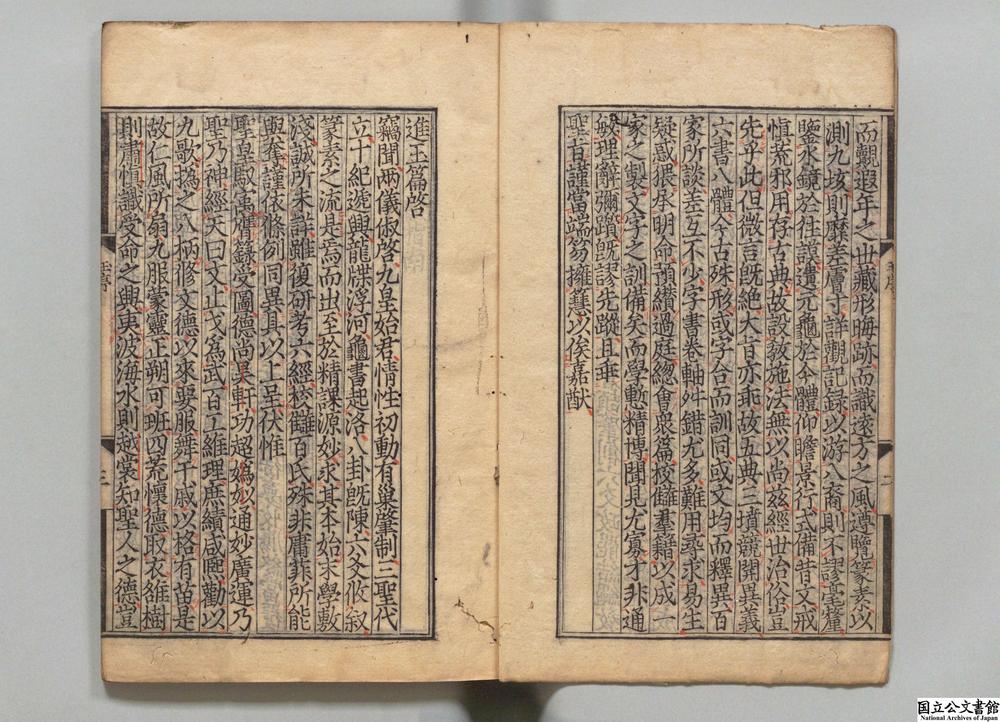 而覿遐年之世藏形晦跡而識遠方之風遵覽篆素以
測九垓則靡差膚寸詳觀記録以游八裔則不謬毫釐
鑒水鏡於往謨遺元龜於今體仰瞻景行式備昔文戒
慎荒邪用存古典故設敎施法無以尚茲經世治俗豈
先乎此但微言既絶大旨亦乖故五典三墳競開異義
六書八體今古殊形或字各而訓同或文均而釋異百
家所談差互不少字書卷軸舛錯尤多難用尋求易生
疑惑猥承明命預纘過庭總會衆篇校讎羣籍以成一
家之製文字之訓備矣而學慙精博聞見尤寡才非通
敏理辭彌躓既謬先蹤且乖
聖旨謹當端笏擁篲以俟嘉猷
進玉篇啓
竊聞兩儀俶啓九皇始君情性初動有巢肇制三聖代
立十紀遞興龍諜浮河龜書起洛八卦既陳六爻攸敍
篆素之流是焉而出至於精課源妙求其本始末學敷
淺誠所未詳雖復研考六經校讎百氏殊非庸菲所能
與奪謹依條例同異具以上呈伏惟
聖皇馭㝢膺籙受圖德尚昊軒功超嬀姒通妙廣運乃
聖乃神經天曰文止戈爲武百工維理庶績咸熙勸以
九歌撝之八柄修文德以來要服舞干戚以格有苗是
故仁風所扇九服蒙靈正朔可班四荒懷德取衣維樹
則肅慎識受命之興夷波海水則越裳知聖人之德豈
玉序
二
国立公文書館
National Archives of Japan